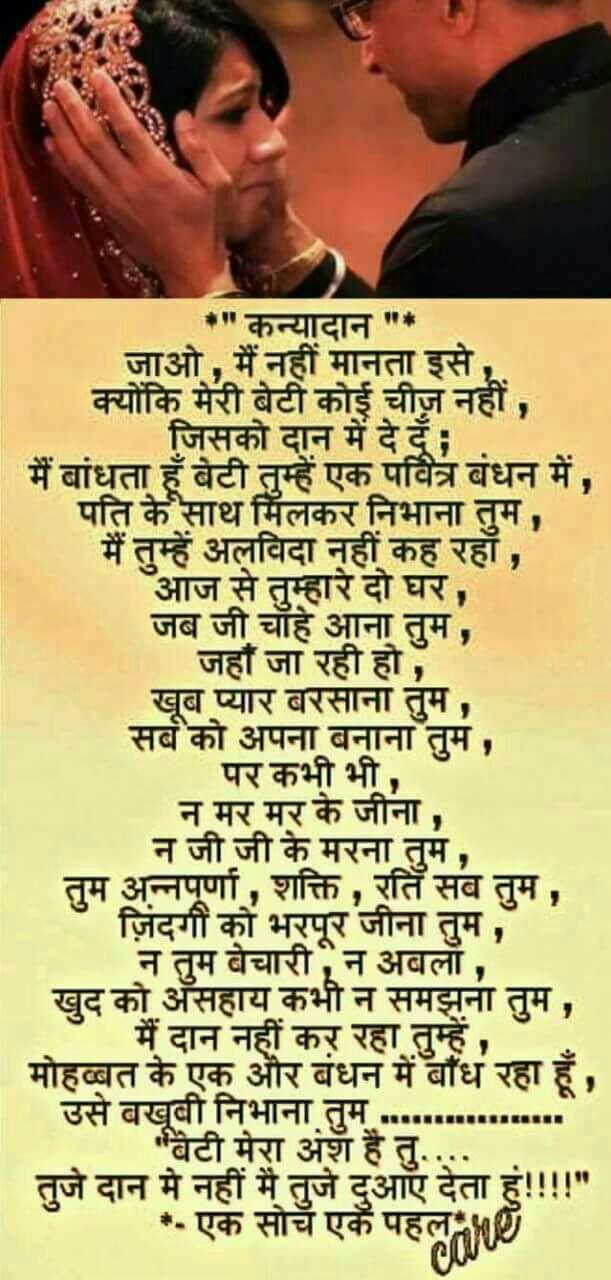 *" कन्यादान "*
जाओ , मैं नहीं मानता इसे ,
क्योंकि मेरी बेटी कोई चीज़ नहीं ,
जिसको दान में दे दूँ ;
मैं बांधता हूँ बेटी तुम्हें एक पवित्र बंधन में ,
पति के साथ मिलकर निभाना तुम ,
मैं तुम्हें अलविदा नहीं कह रहा ,
आज से तुम्हारे दो घर ,
जब जी चाहे आना तुम ,
जहाँ जा रही हो ,
खूब प्यार बरसाना तुम ,
सब को अपना बनाना तुम ,
पर कभी भी ,
न मर मर के जीना ,
न जी जी के मरना तुम ,
तुम अन्नपूर्णा , शक्ति , रति सब तुम ,
ज़िंदगी को भरपूर जीना तुम ,
न तुम बेचारी , न अबला ,
खुद को असहाय कभी न समझना तुम ,
मैं दान नहीं कर रहा तुम्हें ,
मोहब्बत के एक और बंधन में बाँध रहा हूँ ,
उसे बखूबी निभाना तुम .................
"बेटी मेरा अंश है तु....
तुजे दान मे नहीं मै तुजे दुआए देता हुं!!!!"
*- एक सोच एक पहल*
care